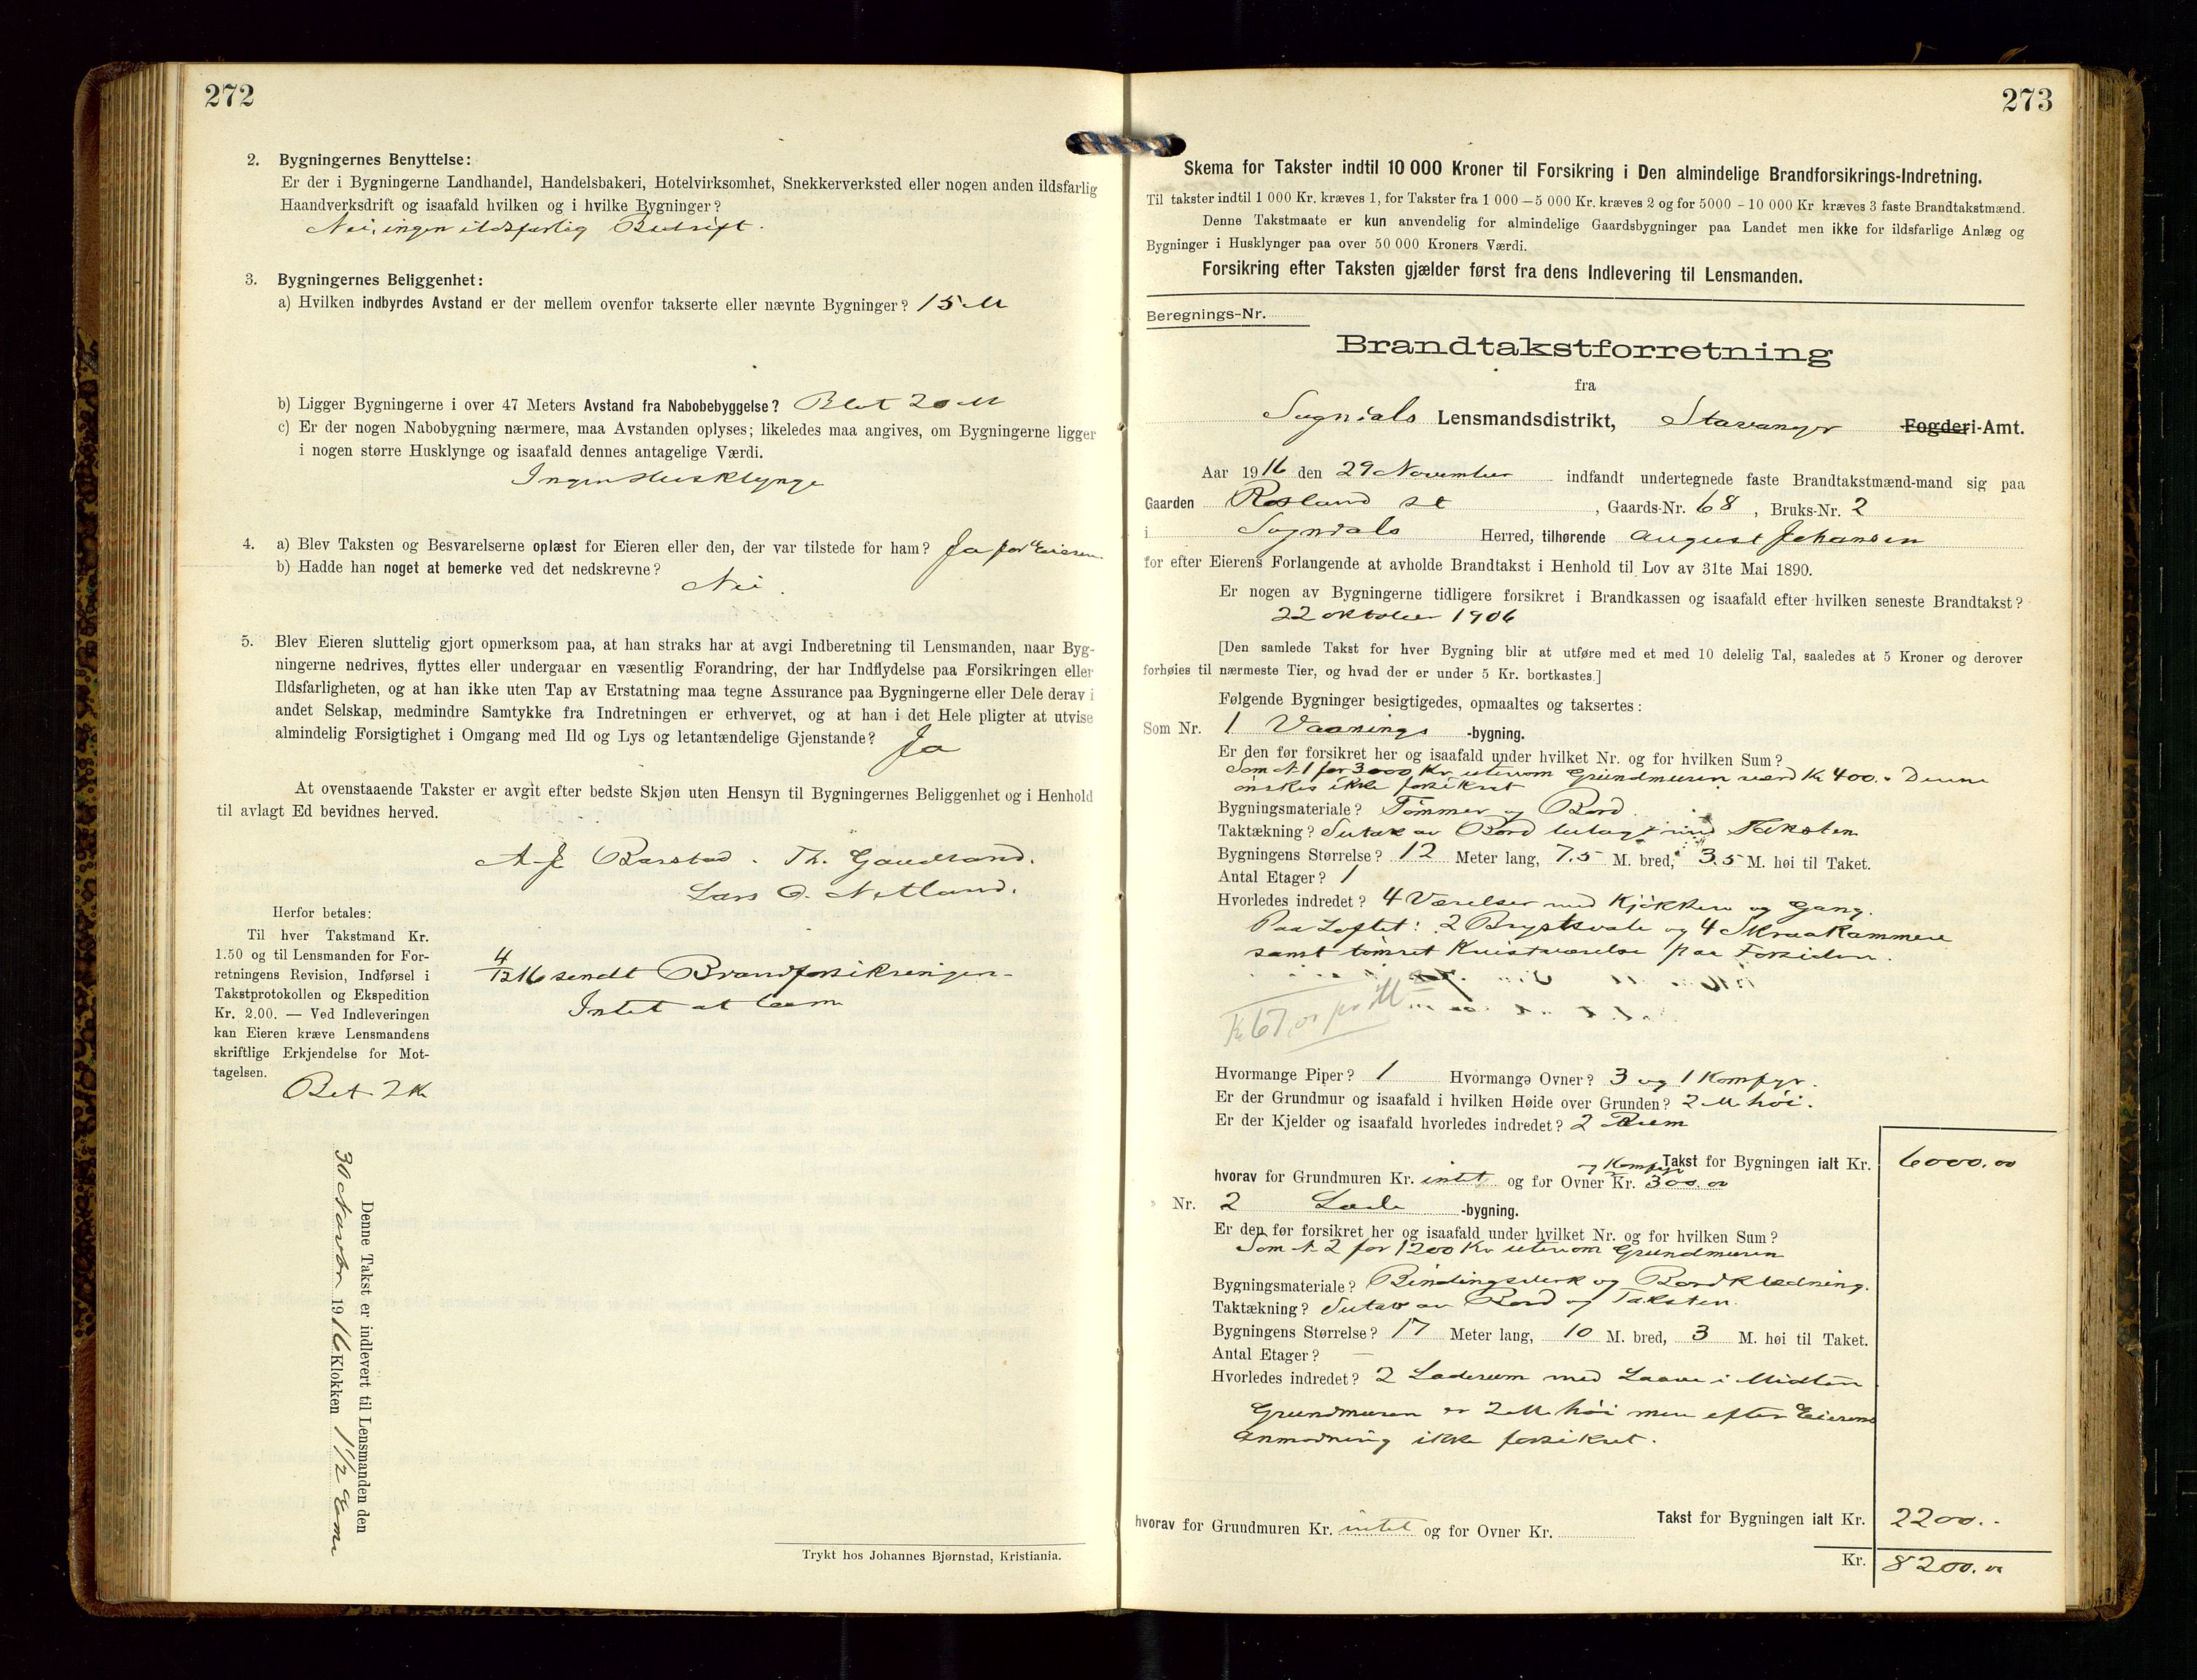 272
2. Bygningernes Benyttelse:
Er der i Bygningerne Landhandel, Handelsbakeri, Hotelvirksomhet, Snekkerverksted eller nogen anden ildsfarlig
Haandverksdrift og isaafald hvilken og i hvilke Bygninger?
Nei, ingen ildsfarlig Bedrift.
3. Bygningernes Beliggenhet:
a) Hvilken indbyrdes Avstand er der mellem ovenfor takserte eller nævnte Bygninger? 15 M
b) Ligger Bygningerne i over 47 Meters Avstand fra Nabobebyggelse? Blot 20 M
c) Er der nogen Nabobygning nærmere, maa Avstanden oplyses; likeledes maa angives, om Bygningerne ligger
i nogen større Husklynge og isaafald dennes antagelige Værdi.
Ingen Husklynge
4. a) Blev Taksten og Besvarelserne oplæst for Eieren eller den, der var tilstede for ham? Ja for Eieren
b) Hadde han noget at bemerke ved det nedskrevne?
Nei.
5. Blev Eieren sluttelig gjort opmerksom paa, at han straks har at avgi Indberetning til Lensmanden, naar Byg-
ningerne nedrives, flyttes eller undergaar en væsentlig Forandring, der har Indflydelse paa Forsikringen eller
Ildsfarligheten, og at han ikke uten Tap av Erstatning maa tegne Assurance paa Bygningerne eller Dele derav i
andet Selskap, medmindre Samtykke fra Indretningen er erhvervet, og at han i det Hele pligter at utvise
almindelig Forsigtighet i Omgang med Ild og Lys og letantændelige Gjenstande? Ja
At ovenstaaende Takster er avgit efter bedste Skjøn uten Hensyn til Bygningernes Beliggenhet og i Henhold
til avlagt Ed bevidnes herved.
Barstad. Th. Gaudland.
Lars O. Netland.
Herfor betales:
Til hver Takstmand Kr.
1.50 og til Lensmanden for For-
retningens Revision, Indførsel i
Takstprotokollen og Ekspedition
Kr. 2.00. — Ved Indleveringen
kan Eieren kræve Lensmandens
skriftlige Erkjendelse for Mot-
tagelsen.
4/12 16 sendt Brandforsikringen
Intet at
Bet 2 Kr
Denne Takst er indlevert til Lensmanden den
30 Novbr 1916 Klokken 1 1/2 Em
Trykt hos Johannes Bjørnstad, Kristiania.
273
Skema for Takster indtil 10 000 Kroner til Forsikring i Den almindelige Brandforsikrings-Indretning.
Til takster indtil 1 000 Kr. kræves 1, for Takster fra 1 000 — 5 000 Kr. kræves 2 og for 5000 - 10 000 Kr kræves 3 faste Brandtakstmænd.
Denne Takstmaate er kun anvendelig for almindelige Gaardsbygninger paa Landet men ikke for ildsfarlige Anlæg og
Bygninger i Husklynger paa over 50 000 Kroners Værdi.
Forsikring efter Taksten gjælder først fra dens Indlevering til Lensmanden.
Beregnings-Nr.
Brandtakstforretning
fra
Sogndals Lensmandsdistrikt, Stavanger Fogderi-Amt.
Aar 1916 den 29 November indfandt undertegnede faste Brandtakstmænd-mand sig paa
Gaarden Røsland , Gaards-Nr. 68 , Bruks-Nr. 2
i Sogndals Herred, tilhørende August Johansen
for efter Eierens Forlangende at avholde Brandtakst i Henhold til Lov av 31te Mai 1890.
Er nogen av Bygningerne tidligere forsikret i Brandkassen og isaafald efter hvilken seneste Brandtakst?
22 oktober 1906
[Den samlede Takst for hver Bygning blir at utføre med et med 10 delelig Tal, saaledes at 5 Kroner og derover
forhøies til nærmeste Tier, og hvad der er under 5 Kr. bortkastes.]
Følgende Bygninger besigtigedes, opmaaltes og taksertes:
Som Nr. 1 Vaanings -bygning.
Er den før forsikret her og isaafald under hvilket Nr. og for hvilken Sum?
Som N. 1 for 3000 Kr utenom Grundmuren værd Kr 400. Denne
ønskes ikke forsikret
Bygningsmateriale? Tømmer og Bord.
Taktækning? Sutak av Bord belagt med Taksten
Bygningens Størrelse? 12 Meter lang, 7.5 M. bred, 3.5 M. høi til Taket.
Antal Etager? 1
Hvorledes indredet? 4 Værelser med Kjøkken og Gang.
Paa Loftet: 2 Brystsvale og 4 Skraakammere
samt tømret Kvistværelse paa Forsiden.
Kr 67,00 pr M
Hvormange Piper? 1 Hvormange Ovner? 3 og 1 Komfyr.
Er der Grundmur og isaafald i hvilken Høide over Grunden? 2 M høi.
Er der Kjelder og isaafald hvorledes indredet? 2 Rum
Takst for Bygningen ialt Kr. 6000.00
hvorav for Grundmuren Kr. intet og for Ovner og Komfyr Kr. 300.00
Nr. 2 Lade -bygning.
Er den før forsikret her og isaafald under hvilket Nr. og for hvilken Sum?
Som N. 2 for 1200 Kr utenom Grundmuren
Bygningsmateriale? Bindingsverk og Bordklædning.
Taktækning? Sutak av Bord og Taksten.
Bygningens Størrelse? 17 Meter lang, 10 M. bred, 3 M. høi til Taket.
Antal Etager? —
Hvorledes indredet? 2 Laderum med Laave i Midten
Grundmuren er 2 M høi men efter Eierens
Anmodning ikke forsikret.
Takst for Bygningen ialt Kr. 2200.-
hvorav for Grundmuren Kr. intet og for Ovner Kr.
Kr. 8200.00